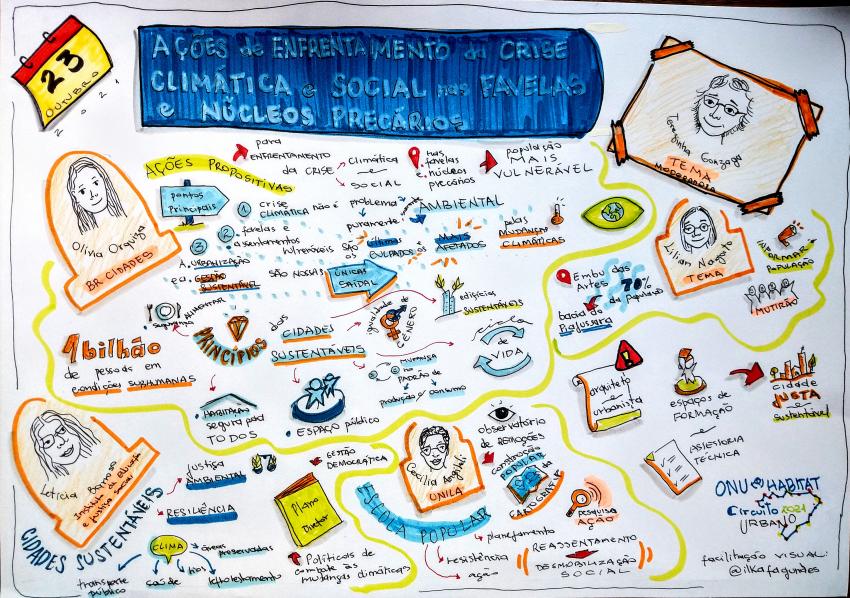 23
OUTUBRO
2021
AÇÕES de ENFRENTAMENTO da CRISE
CLIMÁTICA e SOCIAL nas FAVELAS
e NÚCLEOS PRECÁRIOS
Terezinha Gonzaga
TEMA
MODERADORA
AÇÕES PROPOSITIVAS
para
ENFRENTAMENTO
da CRISE
Climática
e
SOCIAL
nas
favelas
e núcleos
precários
população
MAIS
VULNERÁVEL
Olivia Orquiza
BR CIDADES
pontos
Principais
1 crise
CLIMÁTICA não é problema
puramente
AMBIENTAL
2 favelas e
assentamentos
vulneráveis são
os
MAIS
AFETADOS
pelas
MUDANÇAS
CLIMÁTICAS
3
A URBANIZAÇÃO
e a GESTÃO
SUSTENTÁVEL
SÃO NOSSAS
ÚNICAS
SAÍDAS
Lilian Nogueto
TEMA
INFORMAR a
POPULAÇÃO
MUTIRÃO
Embu das
Artes
70%
da população
bacia do
segurança
ALIMENTAR
1 bilhão
de pessoas em
condições SUBHUMANAS
PRINCÍPIOS
das
CIDADES
SUSTENTÁVEIS
igualdade de
GÊNERO
edifícios
SUSTENTÁVEIS
ciclo
de
VIDA
MUDANÇA
no
PADRÃO de
produção e consumo
HABITAÇÃO
segura para
TODOS
ESPAÇO público
arquiteto e
urbanista
espaços de
FORMAÇÃO
cidade
JUSTA
e
sustentável
ASSESSORIA
TÉCNICA
Letícia
CIDADES SUSTENTÁVEIS
justiça
AMBIENTAL
RESILIÊNCIA
CLIMA
áreas
preservadas
rios
reflorestamento
saúde
transporte
público
GESTÃO
DEMOCRÁTICA
Plano
Diretor
Políticas de
combate às
mudanças climáticas
Cecília Angileli
UNILA
ESCOLA POPULAR
observatório
de REMOÇÕES
construção
POPULAR
da
CARTOGRAFIA
pesquisa
AÇÃO
planejamento
resistência
ação
REASSENTAMENTO
DESMOBILIZAÇÃO
SOCIAL
ONU HABITAT
Circuito 2021
URBANO
facilitação VISUAL:
@ilkafagundes